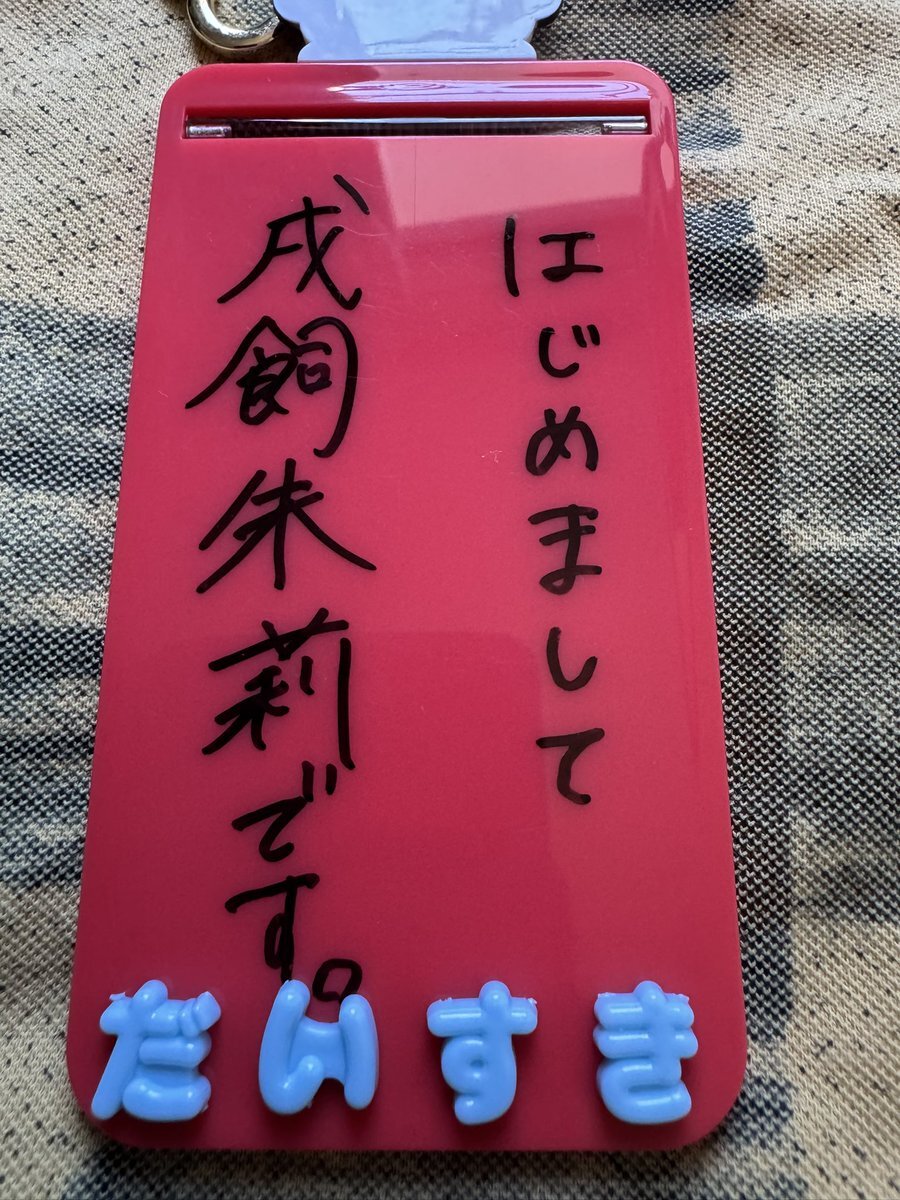 はじめまして
戌飼朱莉です。
だいすき